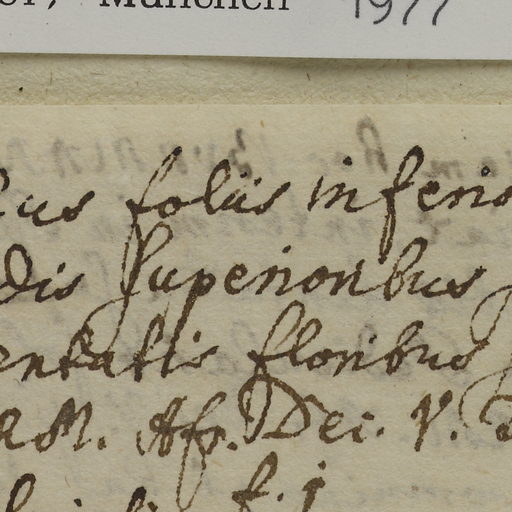 München 1977
foliis inferio
dis superioribus
entatis floribus
RM. Afr. Dec. V.
f. j